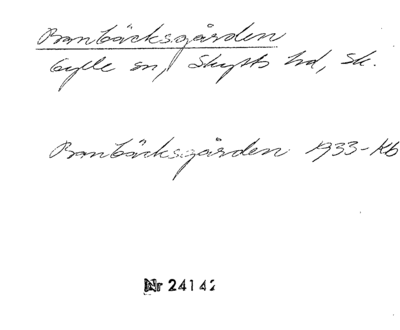 Branbäcksgården
Gylle sn, Skytts hd, Sk.
Branbäcksgården 1933-Kb
Nr 24142